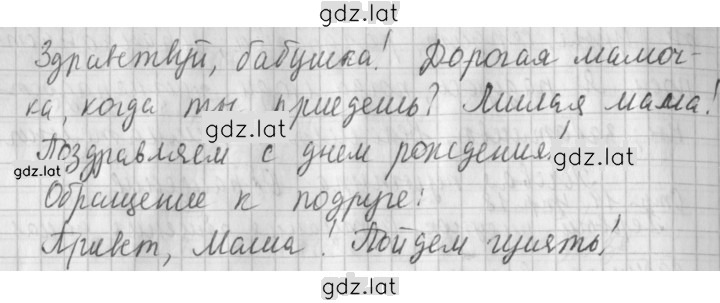 gdz.lat
Здравствуй, бабушка! Дорогая мамоч-
ка, когда ты приедешь? Милая мама!
gdz.lat
Поздравляем с днем рождения!
gdz.lat
gdz.lat
Обращение к подруге:
Привет, Маша! Пойдем гулять!
gdz.lat